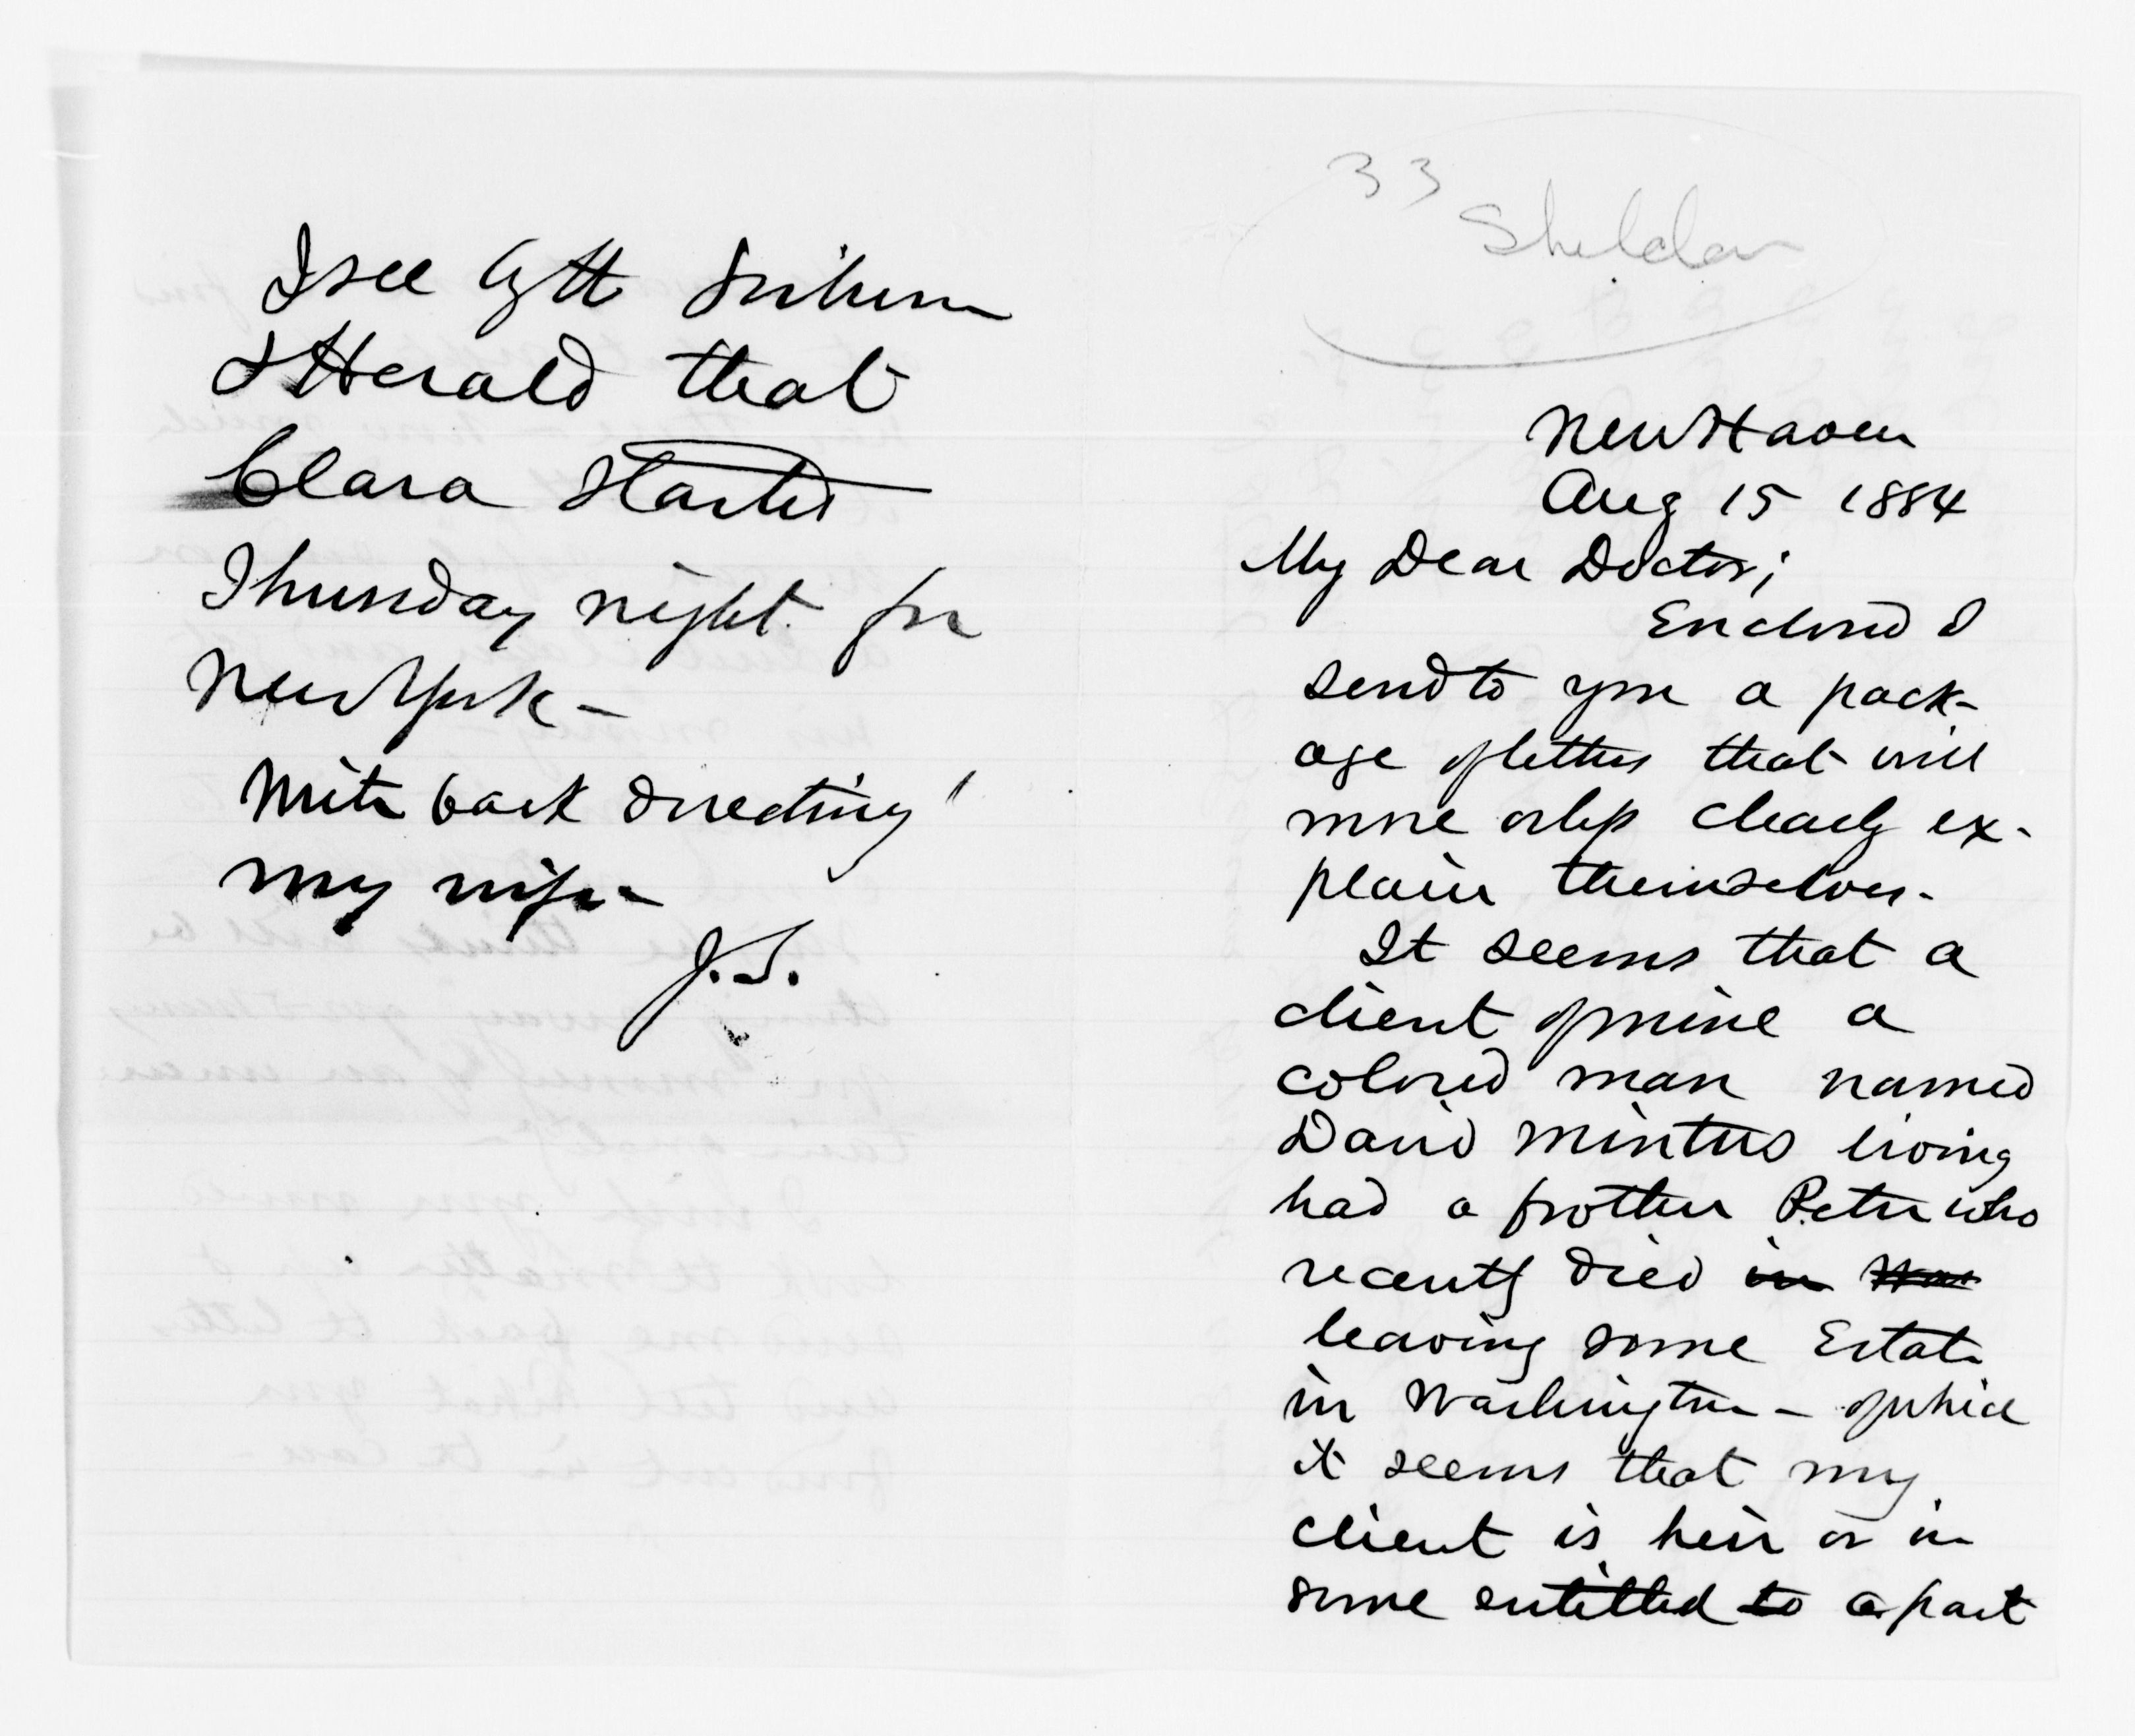 33
Sheldon
New Haven
Aug 15 1884
My Dear Doctor;
Enclosed I
send to you a pack-
age of letters that will
more or less clearly ex-
plain themselves.
It seems that a
client of mine a
colored man named
David Mintus living
had a brother Peter who
recently died in Was
leaving some Estate
in Washington - of which
it seems that my
client is heir or in
some entitled to a part
I see by the Tribune
& Herald that
Clara Started
Thursday night for
New York -
Write back directing
my wife -
J.S.